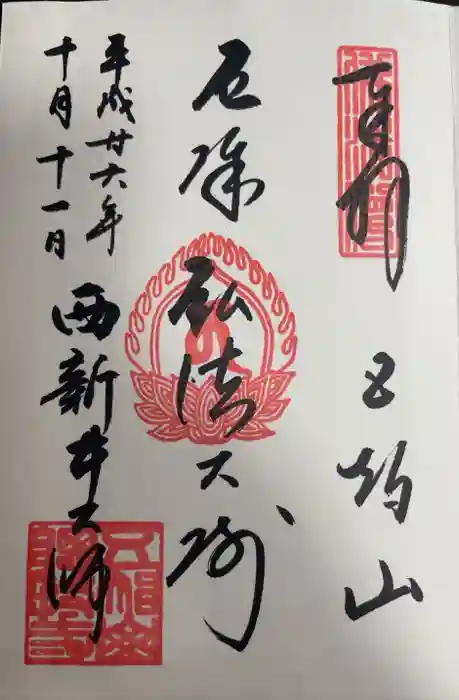 奉拝
五智山
厄除
弘法大師
平成廿六年
十月十一日
西新井大師